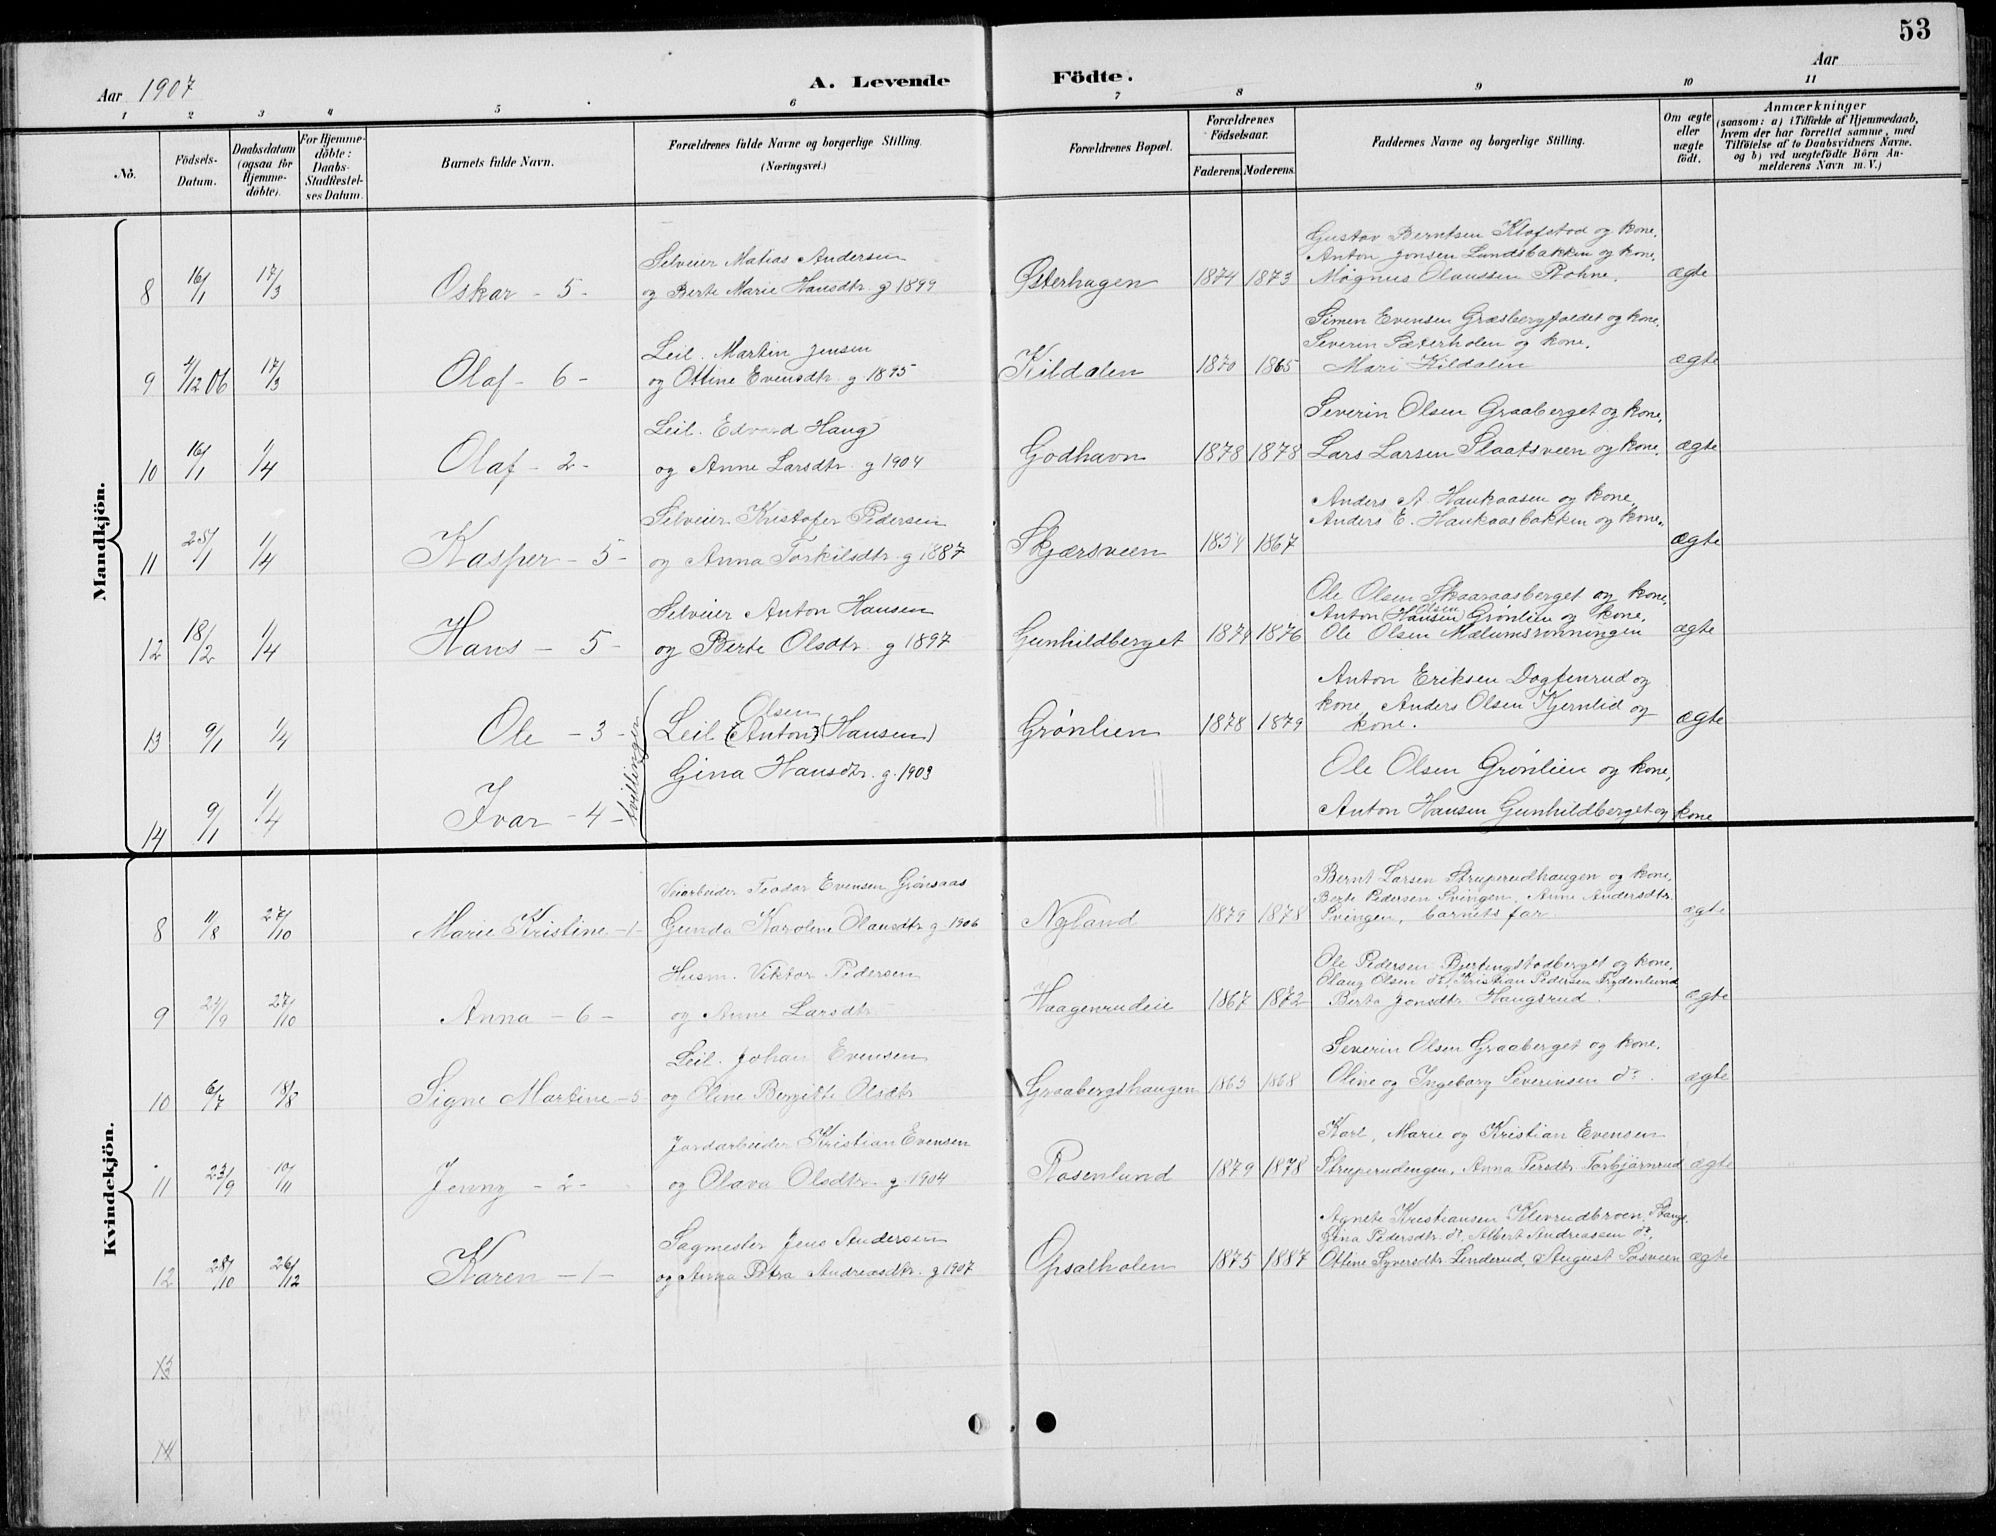 53
Aar 1907
A. Levende Födte.
Aar
1 2 3 4 5 6 7 8 9 10 11
No.
Födsels-Datum.
Daabsdatum (ogsaa for Hjemmedöbte).
For Hjemmedöbte: Daabs-Stadfæstelses Datum.
Barnets fulde Navn.
Forældrenes fulde Navne og borgerlige Stilling. (Næringsvei.)
Forældrenes Bopæl.
Forældrenes Födselsaar.
Faderens. Moderens.
Faddernes Navne og borgerlige Stilling.
Om ægte eller uægte født.
Anmærkninger (saasom: a) i Tilfælde af Hjemmedaab, hvem der har forrettet samme, med Tilföielse af to Daabsvidners Navne. og b) ved uægtefödte Börn Anmelderens Navn m.V.)
Mandkjön.
Gustav Berntsen Klofstad og kone.
Selveier Matias Andersen Anton Jonsen Lundsbakken og kone.
8 16/1 17/3 Oskar - 5 - og Berte Marie Hansdtr. g 1899 Østerhagen 1874 1873 Magnus Olaussen Rohne. ægte
Simen Evensen Græsbergfaldet og kone.
Leil. Martin Jensen Severin Sæterholen og kone.
9 4/12 06 17/3 Olaf - 6 - og Ottine Evensdtr. g 1895 Kildalen 1870 1865 Mari Kildalen ægte
Leil. Edvard Haug Severin Olsen Graaberget og kone.
10 16/1 1/4 Olaf - 2 - og Anne Larsdtr. g 1904 Godhavn 1878 1878 Lars Larsen Slaatsveen og kone. ægte
Anders A. Haukaasen og kone
Selveier Kristofer Pedersen Anders E. Haukaasbakken og kone.
11 25/1 1/4 Kasper - 5 - og Anna Torkilsdtr. g 1887 Skjærsveen 1854 1867 ægte
Ole Olsen Skaaraasberget og kone.
Selveier Anton Hansen Anton (Hansen) Olsen Grønlien og kone.
12 18/2 1/4 Hans - 5 - og Berte Olsdtr. g 1897 Gunhildberget 1874 1876 Ole Olsen Mælumsrønningen ægte
Anton Eriksen Dagfinrud og
Olsen kone, Anders Olsen Kjernlid og
13 9/1 1/4 Ole - 3 - Leil (Anton) (Hansen) Grønlien 1878 1879 kone. ægte
tvillinger
Gina Hansdtr. g. 1903 Ole Olsen Grønlien og kone,
14 9/1 1/4 Ivar - 4 - Anton Hansen Gunhildberget og kone
Kvindekjön.
Veiarbeider Teodor Evensen Grønsaas Bernt Larsen Struperudhaugen og kone,
Berte Pedersen Svingen, Anne Andersdtr.
8 11/8 27/10 Marie Kristine - 1 - Gunda Karoline Olausdtr g 1906 Nyland 1879 1878 Svingen, barnets far ægte
Husm. Viktor Pedersen Ole Pedersen Bjertingstadberget og kone,
Olaug Olsen do, Kristian Pedersen Frydenlund
9 24/9 27/10 Anna - 6 - og Anne Larsdtr Haagenrudeie 1867 1872 Berte Jonsdtr. Haugsrud ægte
Leil. Johan Evensen Severin Olsen Graaberget og kone.
10 6/7 18/8 Signe Martine - 5 og Oline Bergitte Olsdtr Graabergshaugen 1863 1868 Oline og Ingeborg Severinsen do. ægte
Jordarbeider Kristian Evensen Karl, Marie og Kristian Evensen
11 23/9 10/11 Jenny - 2 - og Olava Olsdtr. g. 1904 Rosenlund 1879 1878 Struperudengen, Anna Persdtr Torbjørnrud ægte
Sagmester Jens Andersen Agnete Kristiansen Klevrudbroen, Stange,
Gina Pedersdtr. do, Albert Andreassen do,
12 28/10 26/12 Karen - 1 - og Anna Petra Andreasdtr. g 1907 Opsalholen 1875 1887 Ottine Syversdtr. Linderud, August Sosveen ægte
13
14